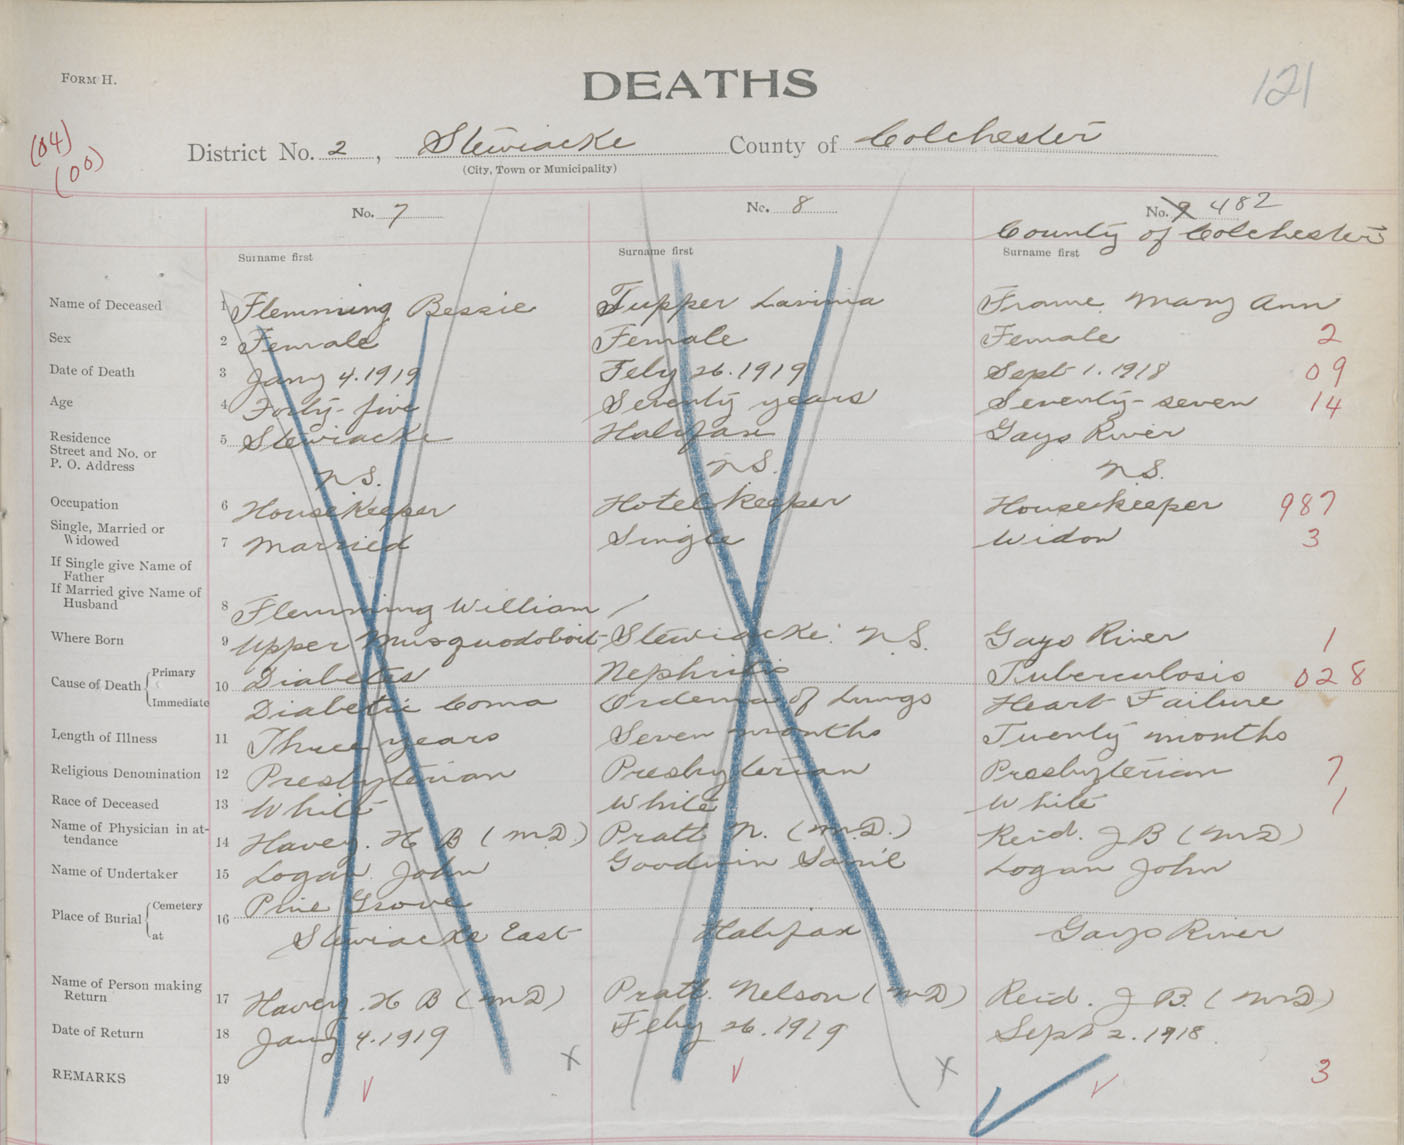 FORM H.
DEATHS
121
(04)
(00)
District No. 2, Stewiacke County of Colchester
(City, Town or Municipality)
No. 7 No. 8 No. 9 482
County of Colchester
Surname first Surname first Surname first
Name of Deceased 1 Flemming Bessie Tupper Lavinia Frame Mary Ann
Sex 2 Female Female Female 2
Date of Death 3 Jany 4.1919 Feby 26.1919 Sept 1.1918 09
Age 4 Forty-five Seventy years Seventy-seven 14
Residence 5 Stewiacke Halifax Gays River
Street and No. or
P. O. Address NS. NS. NS.
Occupation 6 Housekeeper Hotel Keeper Housekeeper 987
Single, Married or
Widowed 7 Married Single Widow 3
If Single give Name of
Father
If Married give Name of
Husband 8 Flemming William /
Where Born 9 Upper Musquodoboit Stewiacke. N.S. Gays River 1
Cause of Death Primary 10 Diabetes Nephritis Tuberculosis 028
Immediate Diabetic Coma Oedema of Lungs Heart Failure
Length of Illness 11 Three years Seven months Twenty months
Religious Denomination 12 Presbyterian Presbyterian Presbyterian 7
Race of Deceased 13 White White White 1
Name of Physician in at-
tendance 14 Havey. H B (M.D) Pratt N. (M.D.) Reid. J B (MD)
Name of Undertaker 15 Logan. John Goodwin Logan John
Place of Burial Cemetery 16 Pine Grove
at Stewiacke East Halifax Gays River
Name of Person making
Return 17 Havey. H B (MD) Pratt. Nelson (MD) Reid. J B. (MD)
Date of Return 18 Jany 4.1919 Feby 26.1919 Sept 2.1918.
REMARKS 19 3